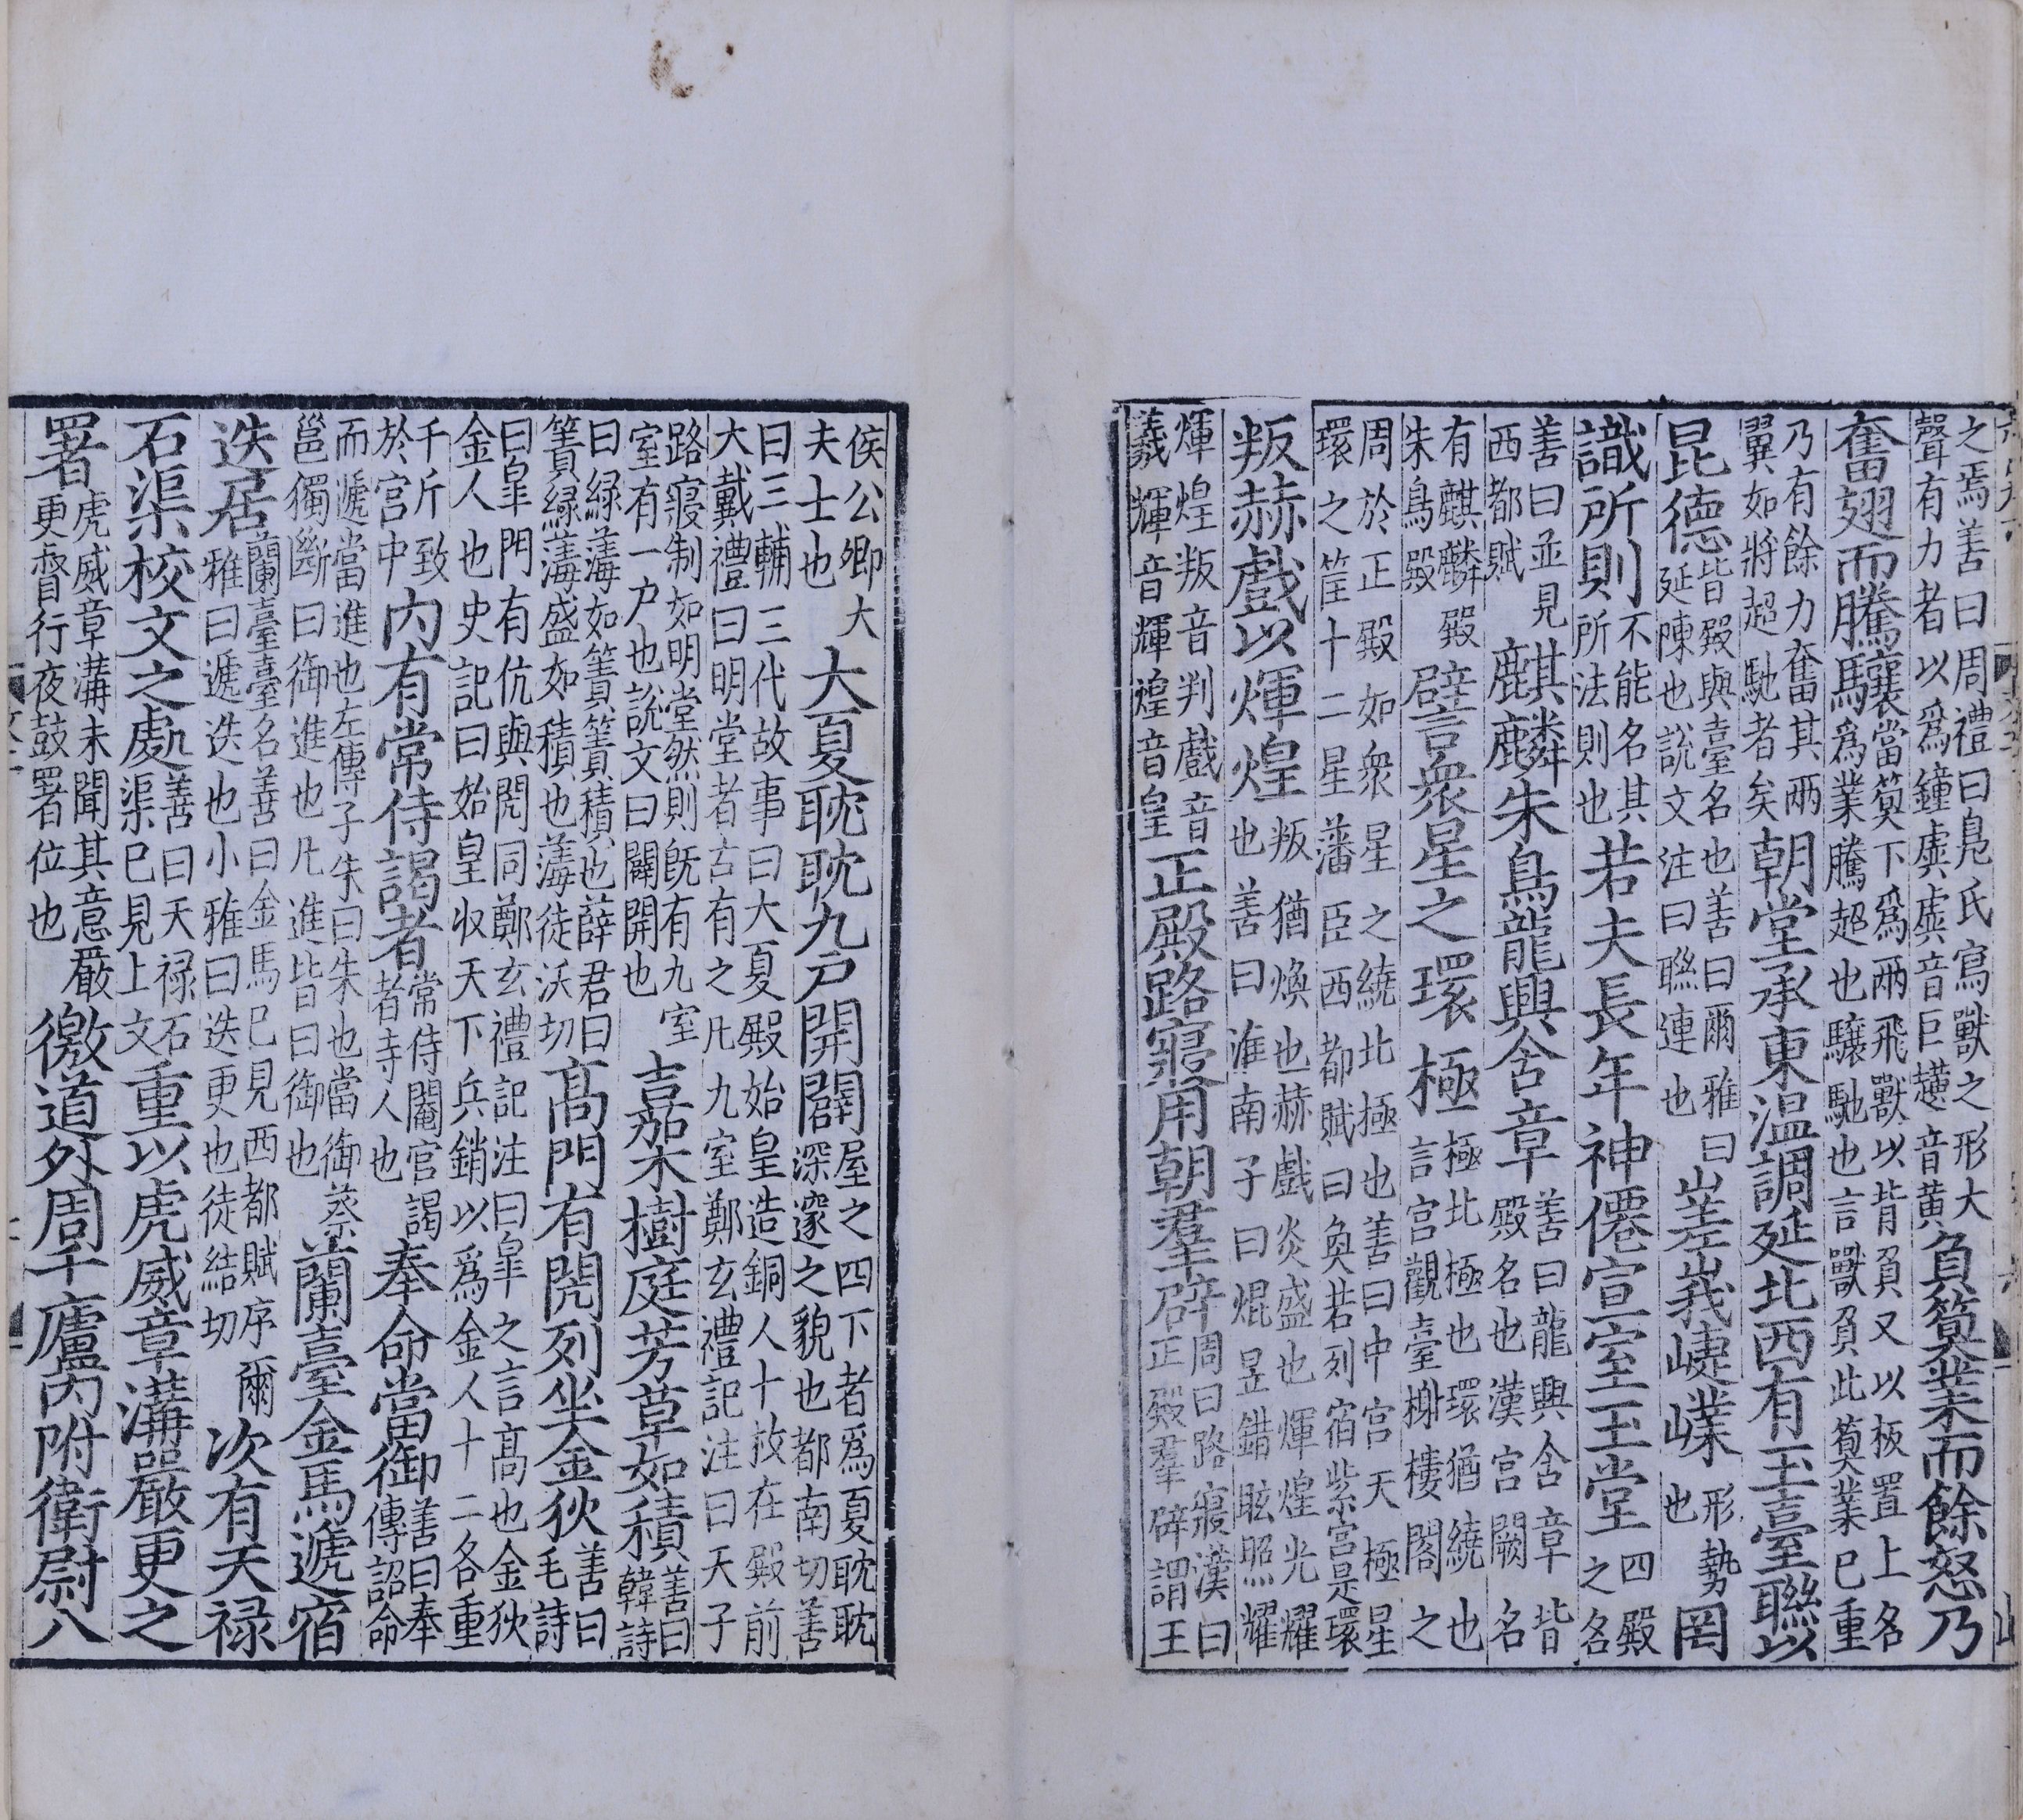 之焉善曰周禮曰鳧氏寫獸之形大聲有力者以爲鐘虡虡音巨趪音黃負筍業而餘怒乃
奮翅而騰驤當筍下爲兩飛獸以背負又以板置上名爲業騰超也驤馳也言獸負此筍業已重
乃有餘力奮其兩翼如將超馳者矣朝堂承東温調延北西有玉臺聯以
昆德皆殿與臺名也善曰爾雅曰延陳也說文注曰聮連也嵳峩崨嶪形勢也罔
識所則不能名其所法則也若夫長年神僊宣室玉堂四殿之名
善曰並見西都賦麒麟朱鳥龍興含章善曰龍興含章皆殿名也漢宮闕名
有麒麟殿朱鳥殿譬衆星之環極極北極也環猶繞也言宮觀臺榭樓閣之
周於正殿如衆星之繞北極也善曰中宮天極星環之筐十二星藩臣西都賦曰奐若列宿紫宮是環
叛赫戲以煇煌叛猶煥也赫戲炎盛也煇煌光耀也善曰淮南子曰焜昱錯眩照耀
煇煌叛音判戲音羲輝音輝煌音皇正殿路寢用朝羣辟周曰路寢漢曰正殿羣辟謂王
侯公卿大夫士也大夏耽耽九户開闢屋之四下者爲夏耽耽深邃之貌也都南切善
曰三輔三代故事曰大夏殿始皇造銅人十枚在殿前大戴禮曰明堂者古有之凡九室鄭玄禮記注曰天子
路寢制如明堂然則旣有九室室有一户也說文曰闢開也嘉木樹庭芳草如積善曰韓詩
曰緑如簀簀積也薛君曰簀緑盛如積也徒沃切髙門有閌列坐金狄善曰毛詩
曰皐門有伉與閌同鄭玄禮記注曰皐之言髙也金狄金人也史記曰始皇收天下兵銷以爲金人十二各重
千斤致於宮中内有常侍謁者常侍閹官謁者寺人也奉命當御善曰奉傳詔命
而遞當進也左傳子朱曰朱也當御蔡邕獨斷曰御進也凡進皆曰御也蘭臺金馬遞宿
迭居蘭臺臺名善曰金馬已見西都賦序爾雅曰遞迭也小雅曰迭更也徒結切次有天禄
石渠校文之處善曰天禄石渠已見上文重以虎威章溝嚴更之
署虎威章溝未聞其意嚴更督行夜鼓署位也徼道外周千廬内附衛尉八